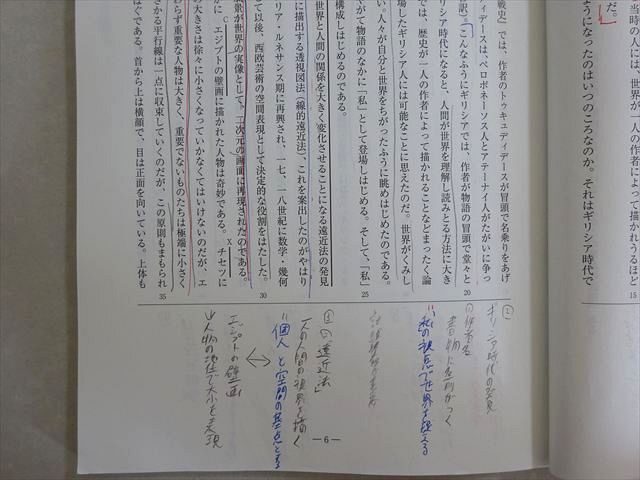 当時の人には、世界が一人の作者によって描かれうるほど
ようになったのはいつのころなのか。それはギリシア時代で
だ。
15
戦史』では、作者のトゥキュディデースが冒頭で名乗りをあげ
ィデースは、ペロポネーソス人とアテーナイ人がたがいに争っ
訳)。こんなふうにギリシアでは、作者が物語の冒頭で堂々と
20
リシア時代になると、人間が世界を理解し読みとる方法に大き
では、歴史が一人の作者によって描かれることなどまったく論
場したギリシア人には可能なことに思えたのだ。世界がくみし
がて物語のなかに「私」として登場しはじめる。そして、「私」
25
いだ。人々が自分と世界をちがったふうに眺めはじめたのである。
構成しはじめるのである。
世界と人間の関係を大きく変化させることになる遠近法の発見
に描出する透視図法(線的遠近法)、これを案出したのがやはり
リア・ルネサンス期に再興され、一七、一八世紀に数学・幾何
て以後、西欧芸術の空間表現として決定的な役割をはたした。
30
景が世界の実像として、二次元の画面に再現されたのである。
C
かに、エジプトの壁画に描かれた人物は奇妙である。チセツに
X
大きさは徐々に小さくなっていかなくてはいけないのだが、エ
わらず重要な人物は大きく、重要でないものたちは極端に小さく
さかる平行線は一点に収束していくのだが、この原則もまもられ
35
はぐである。首から上は横顔で、目は正面を向いている。上体も
②
ギリシア時代の発見
①作者名
書物に名前がつく
"私の視点"で世界を捉える
④「遠近法」
一人の人間の視界を描く
"個人"と空間の基点とする
エジプトの壁画
人物の地位で大小を表現
—6—